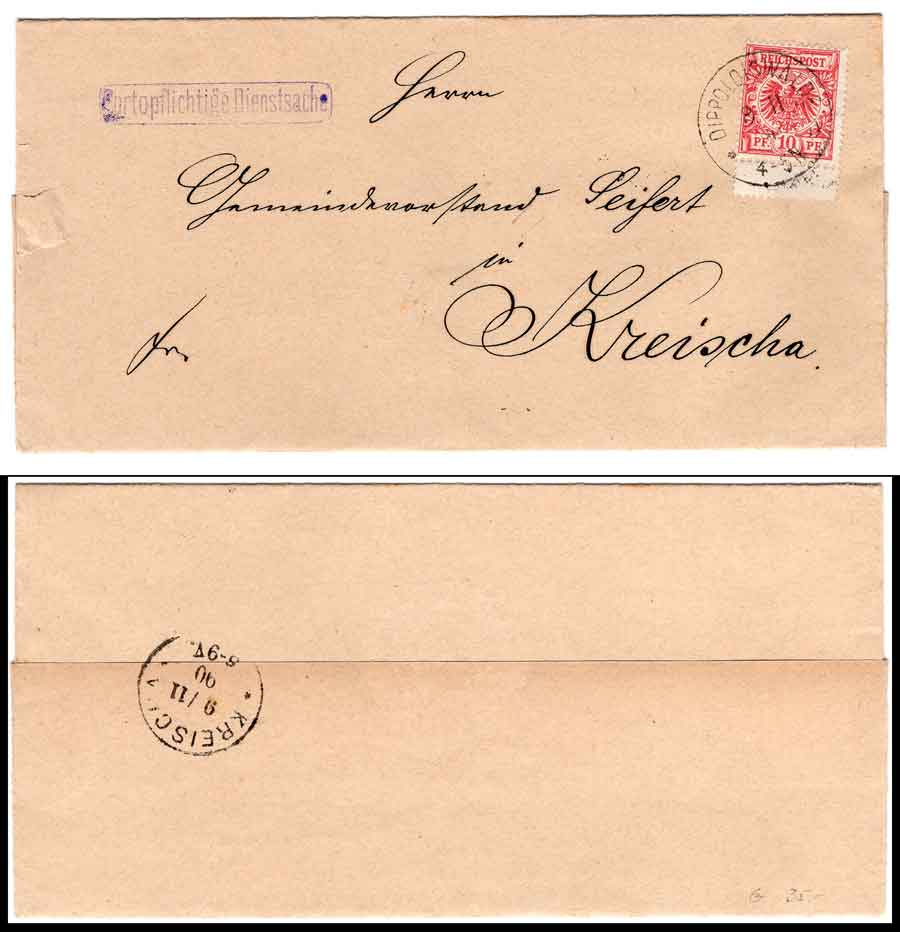 Portopflichtige Dienstsache
Herrn
REICHSPOST
PF. 10 PF.
DIPPOLDISWALDE
11
4-5N
Gemeindevorstand Seifert
in
Kreischa.
Fr.
KREISCHA
9/11
90
8-9V.
35.-